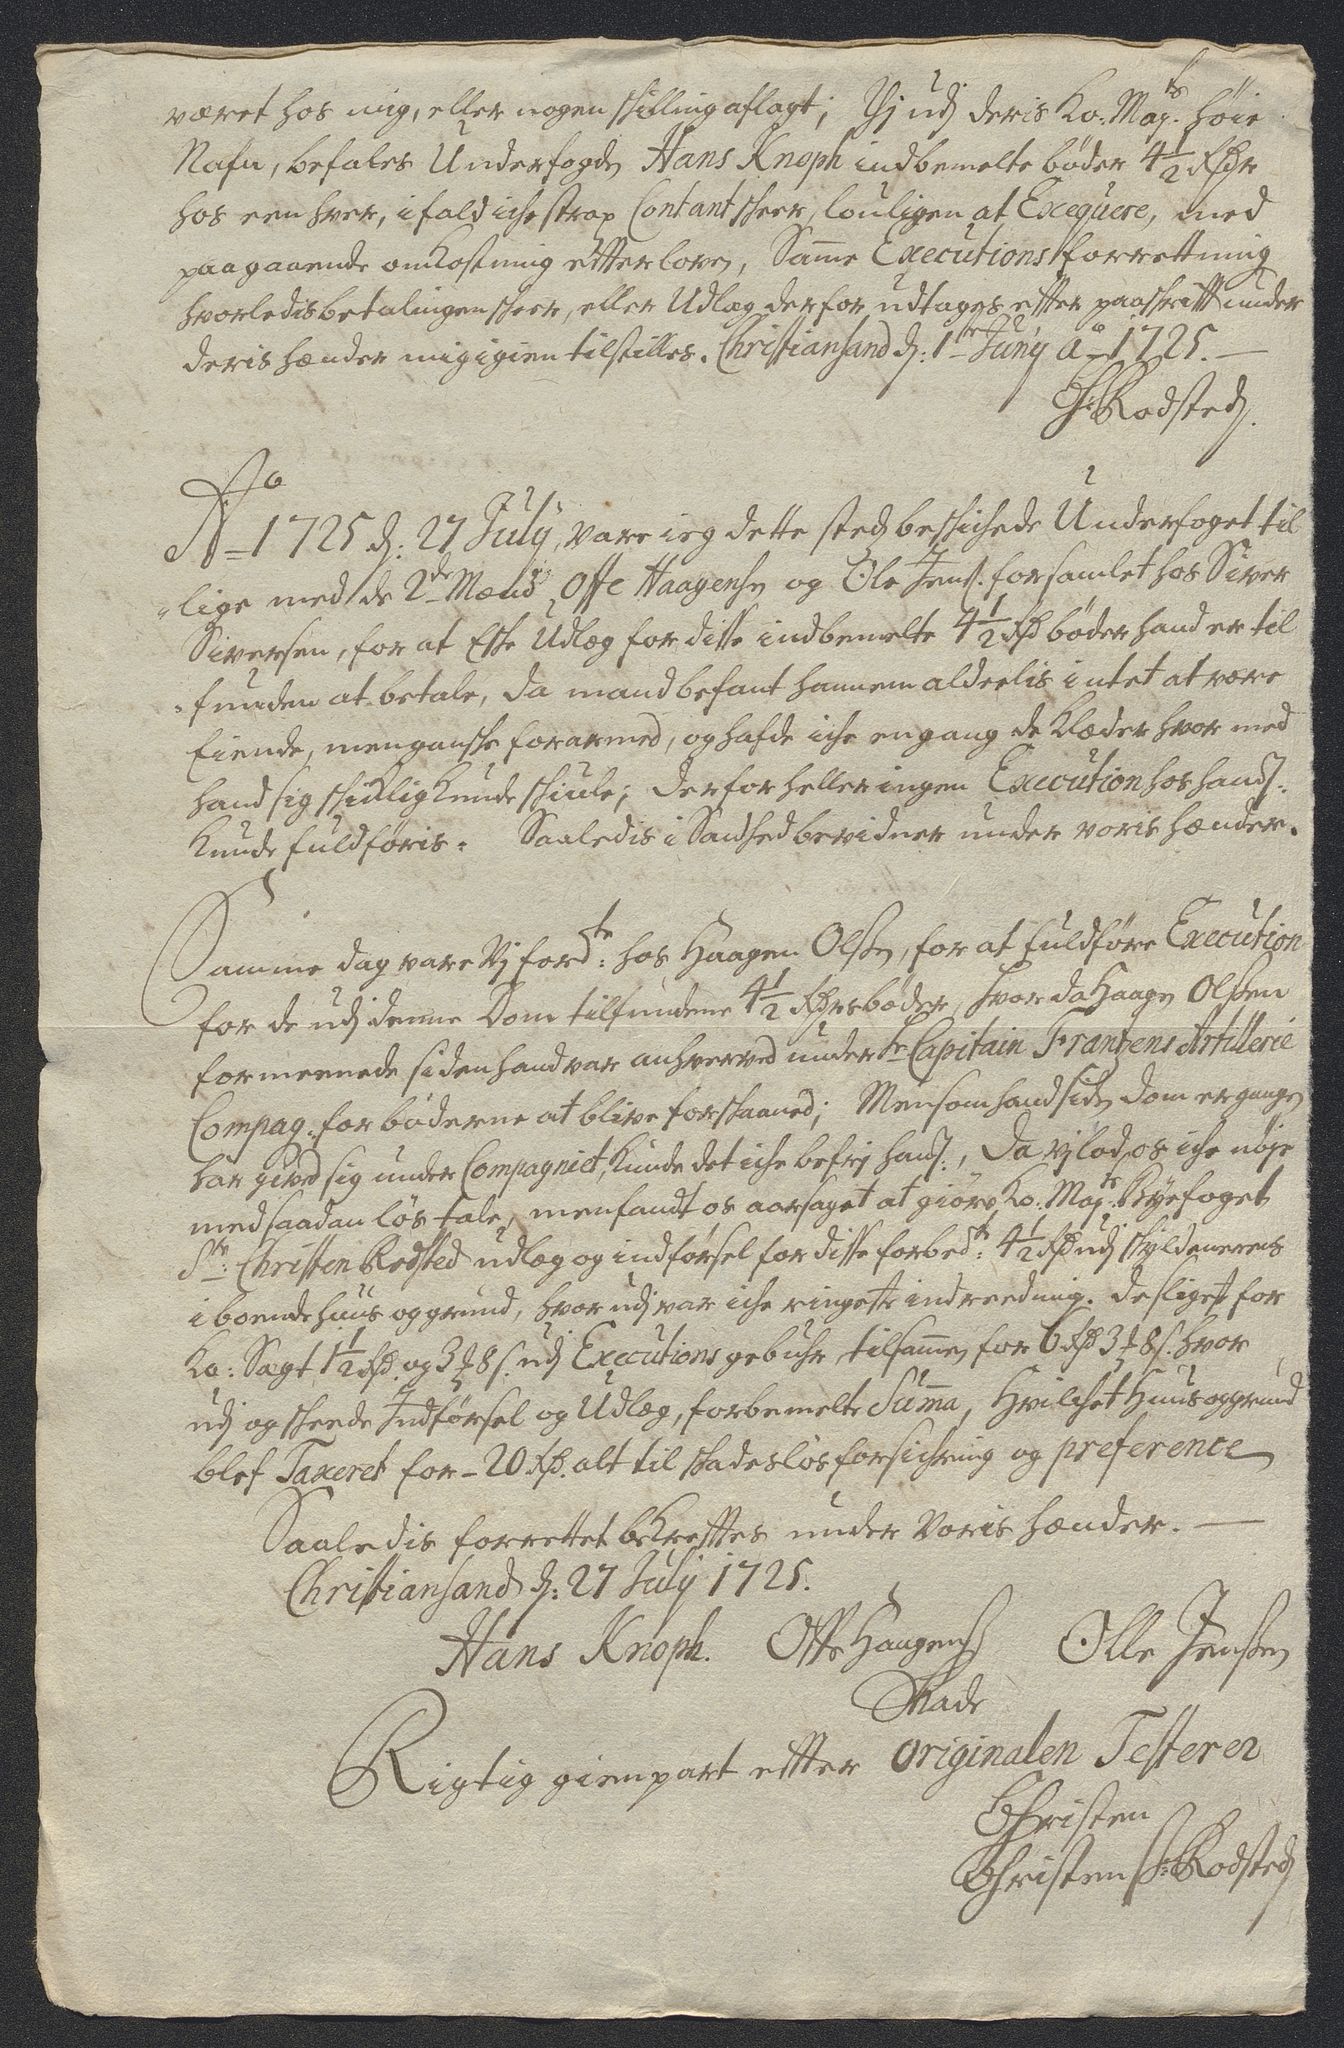 været hos mig, eller nogen skilling aflagt; Thj udj deris Ko: Majts. höie
Nafn, befales Underfogden Hans Knoph indbemelte böder 4½ Rdr
hos een hver, ifald iche strax Contant scheer, louligen at Exequere, med
paagaaende omkostning efter loven, Samme Executions forrettning
hvorledis betalingen scheer, eller Udlæg derfor udtages efter paaskrift under
deris hænder mig igien tilstilles. Christiansand d: 1te Junÿ Ao 1725. —
C: Rodsted.
Ao 1725 d: 27 Julÿ, vare ieg dette sted beschichede Underfoget til
lige med de 2de Mænd, Offe Haagensen og Ole Jens. forsamlet hos Siver
Siversen, for at Eske Udlæg for disse indbemelte 4½ Rd böder hand er til
funden at betale, da mand befant hannem aldeelis intet at være
Eiende, men ganske forarmed, og hafde iche en gang de Klæder hvor med
hand sig schicklig kunde schiule; derfor heller ingen Execution hos hands:
kunde fuldföris. Saaledis i Sandhed bevidner under voris hænder.
Samme dag vare Vj fordte: hos Haagen Olsen, for at fuldföre Execution
for de udj denne Dom tilfundene 4½ Rdrs böder, hvor da Haagen Olsen
formeenede siden hand var anhverved under Hr Capitain Frantzens Artillerie
Compag: for böderne at blive forskaaned; Men som hand siden dom er gangen
har gived sig under Compagniet, kunde det iche befrj hands:, Da vj lod os iche nöje
med saadan lös tale, men fandt os aarsaget at giöre Ko: Majts. Bÿefoget
Sr: Christen Rodsted udlæg og indförsel for disse forbedte: 4½ Rd udj skyldenerens
i boende huus og grund, hvor udj var iche ringeste indreedning. desligest for
Ko: Sagt 1½ Rd. og 3 ₰ 8 s. udj Executions gebuhr, tilsammen for 6 Rd 3 ₰ 8 s. hvor
udj og skeede Indförsel og Udlæg, forbemelte Summa, Hvilchet Huus og grund
blef Taxeret for 20 Rd. alt til skadeslös forsichring og preference
Saaledis forrettet bekreftes under Voris hænder. —
Christiansand d: 27 Julÿ 1725.
Hans Knoph. Offe Haagens Olle Jensen
Skade
Rigtig gienpart efter originalen Testerer
Christen
Christen S: Rodsted